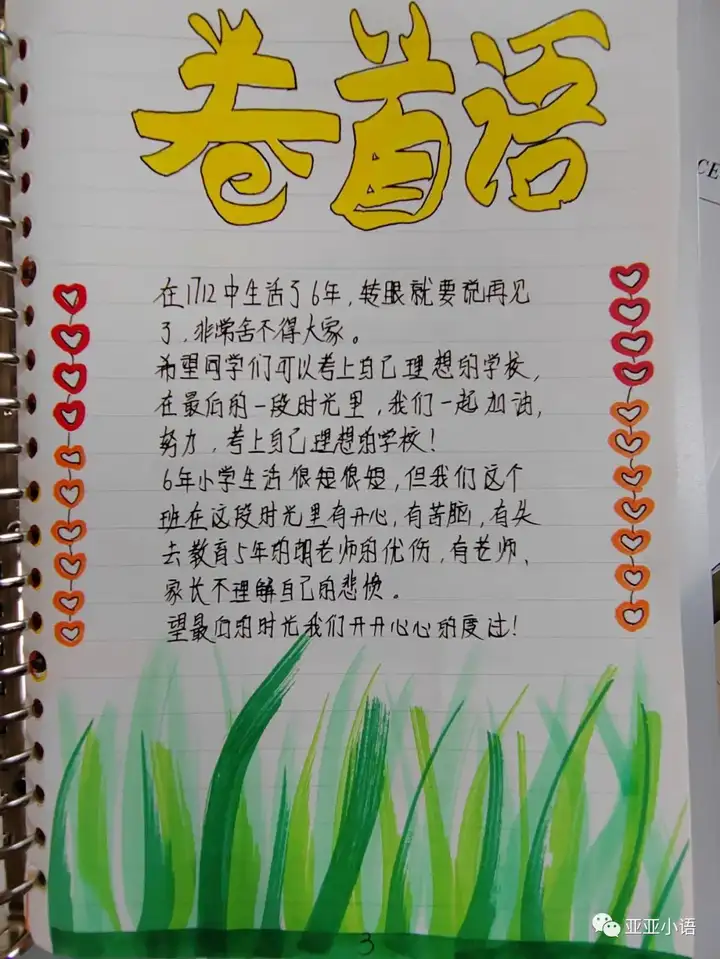 卷首语
在1712中生活了6年，转眼就要说再见
了，非常舍不得大家。
希望同学们可以考上自己理想的学校，
在最后的一段时光里，我们一起加油，
努力，考上自己理想的学校！
6年小学生活很短很短，但我们这个
班在这段时光里有开心，有苦脑，有失
去教育5年的胡老师的优伤，有老师、
家长不理解自己的悲愤。
望最后的时光我们开开心心的度过！
3
CE
亚亚小语